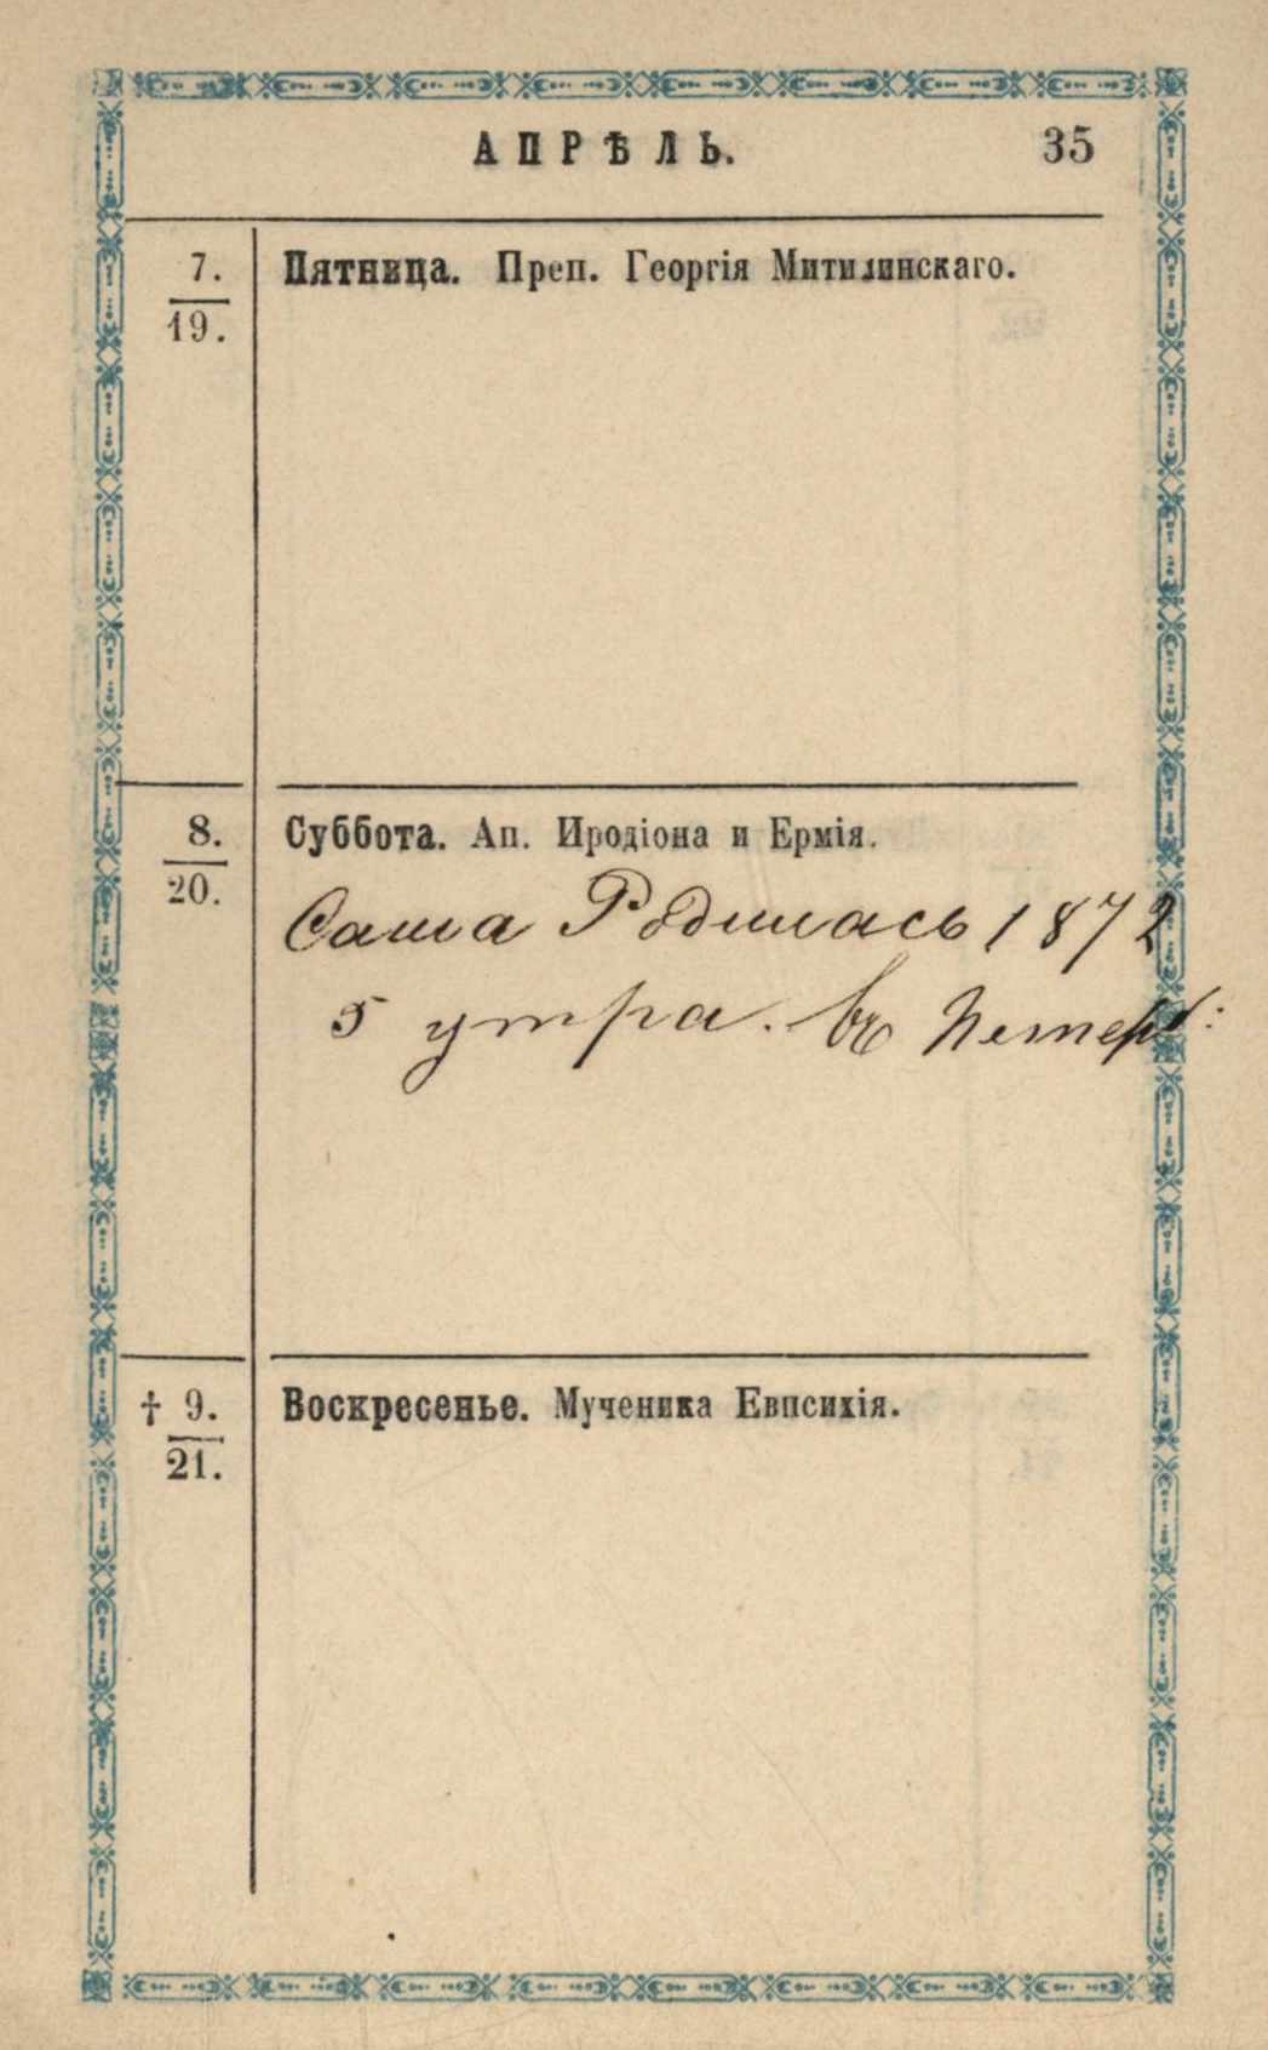 АПРѢЛЬ. 35
7. Пятница. Преп. Георгія Митилинскаго.
19.
8. Суббота. Ап. Иродіона и Ермія.
20.
Саша Родилась 1872
5 утра. въ Петерб:
† 9. Воскресенье. Мученика Евпсихія.
21.